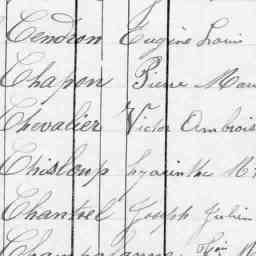 Cendron Eugène Louis
Chapon Pierre
Chevalier Victor Ambrois
Chisloup hyacinthe
Chantrel Joseph Julien